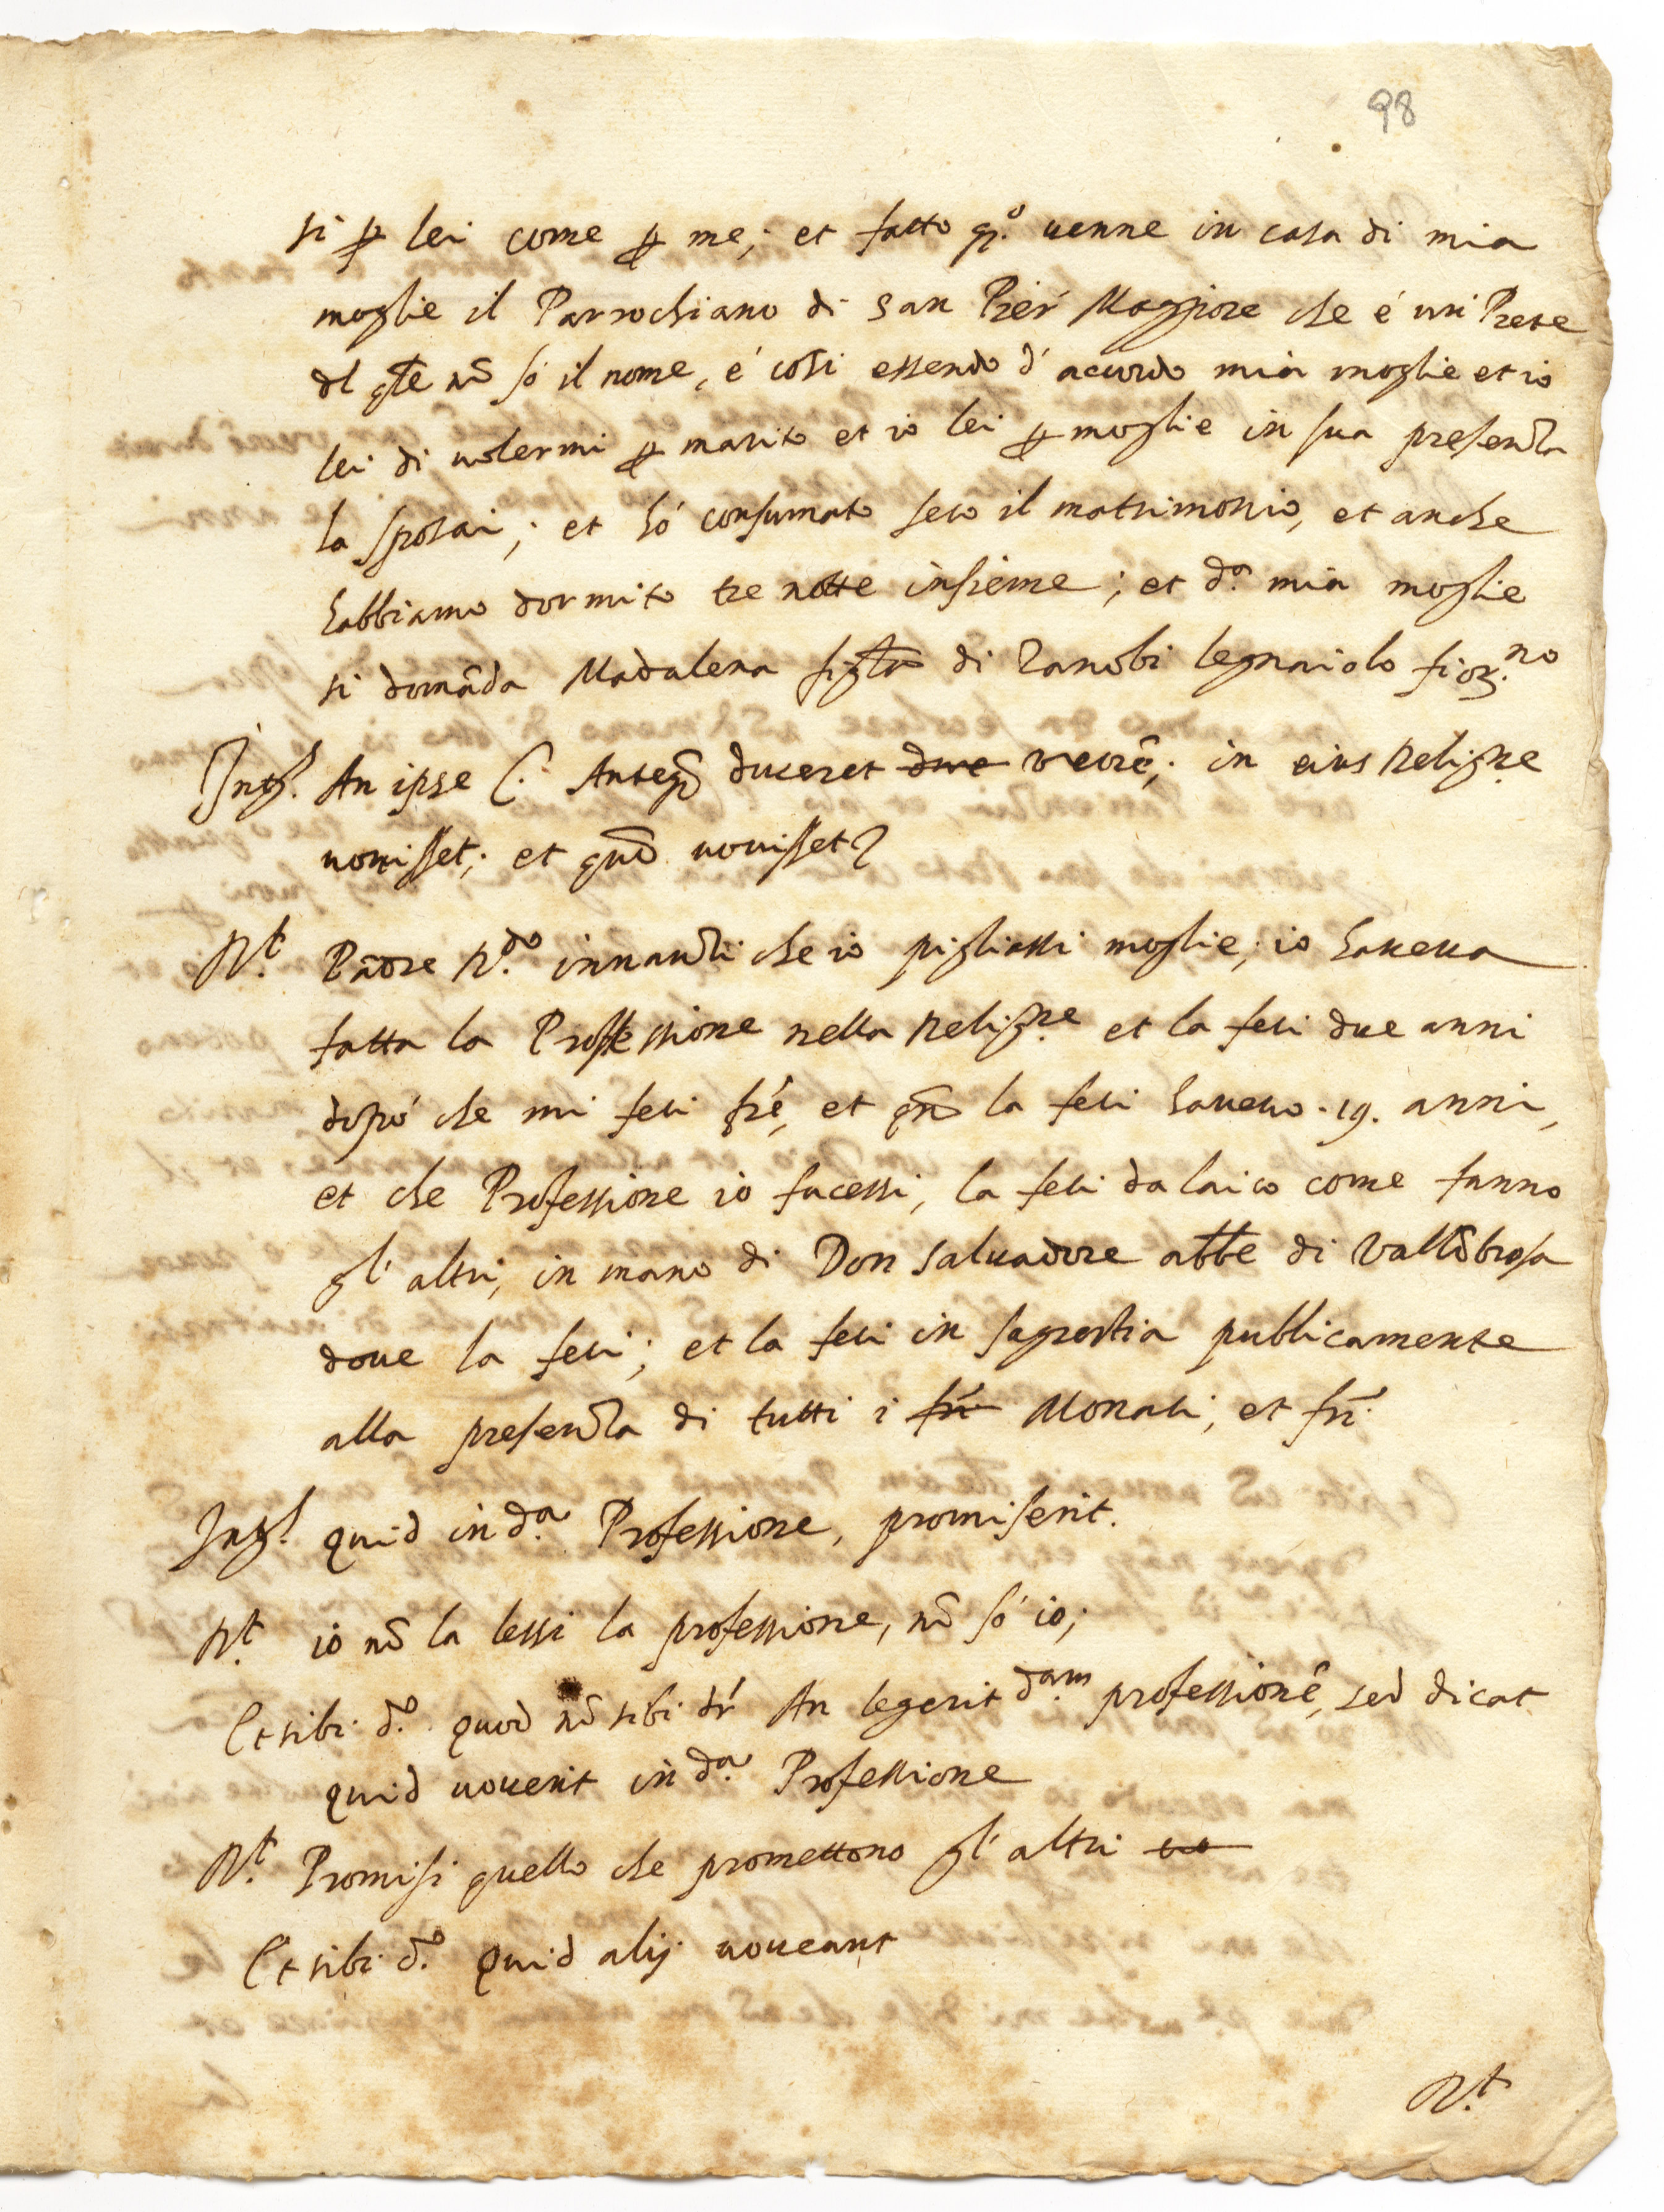 98
si p lei come p me; et fatto q.º uenne in casa di mia
moglie il Parrochiano di san Pier Maggiore che é un Prete
dl qle nõ só il nome, é cosi essendo d'acuordo mia moglie et io
lei di uolermi p marito et io lei p moglie in sua presenza
la sposai; et hó consumato seco il matrimonio, et anche
habbiamo dormito tre notte insieme; et d.ª mia moglie
si domãda Madalena figla di Zanobi legnaiolo fior.no
Intᵗ. An ipse C. Anteq̃ duceret uxorẽ; in eius Religne
nouisset; et quõ uouisset?
R.t Padre R.do innanzi che io pigliassi moglie, io haueua
fatta la Professione nella Relig.ne et la feci due anni
dopó che mi feci frẽ, et qñ la feci haueuo .19. anni,
et che Professione io facessi, la feci da laico come fanno
gl'altri, in mano di Don saluadore abbe di Vallõbrosa
doue la feci; et la feci in sagrestia publicamente
alla presenza di tutti i fri Monaci, et fri.
Intᵗ. quid in d.ª Professione, promiserit.
R.t io nõ la lessi la professione, nõ só io;
Et sibi d.º quod nõ sibi dr An legerit dam professionẽ, sed dicat
quid uouerit in d.ª Professione
R.t Promisi quello che promettono gl'altri
Et sibi d.º Quid alij uoueant
R.t